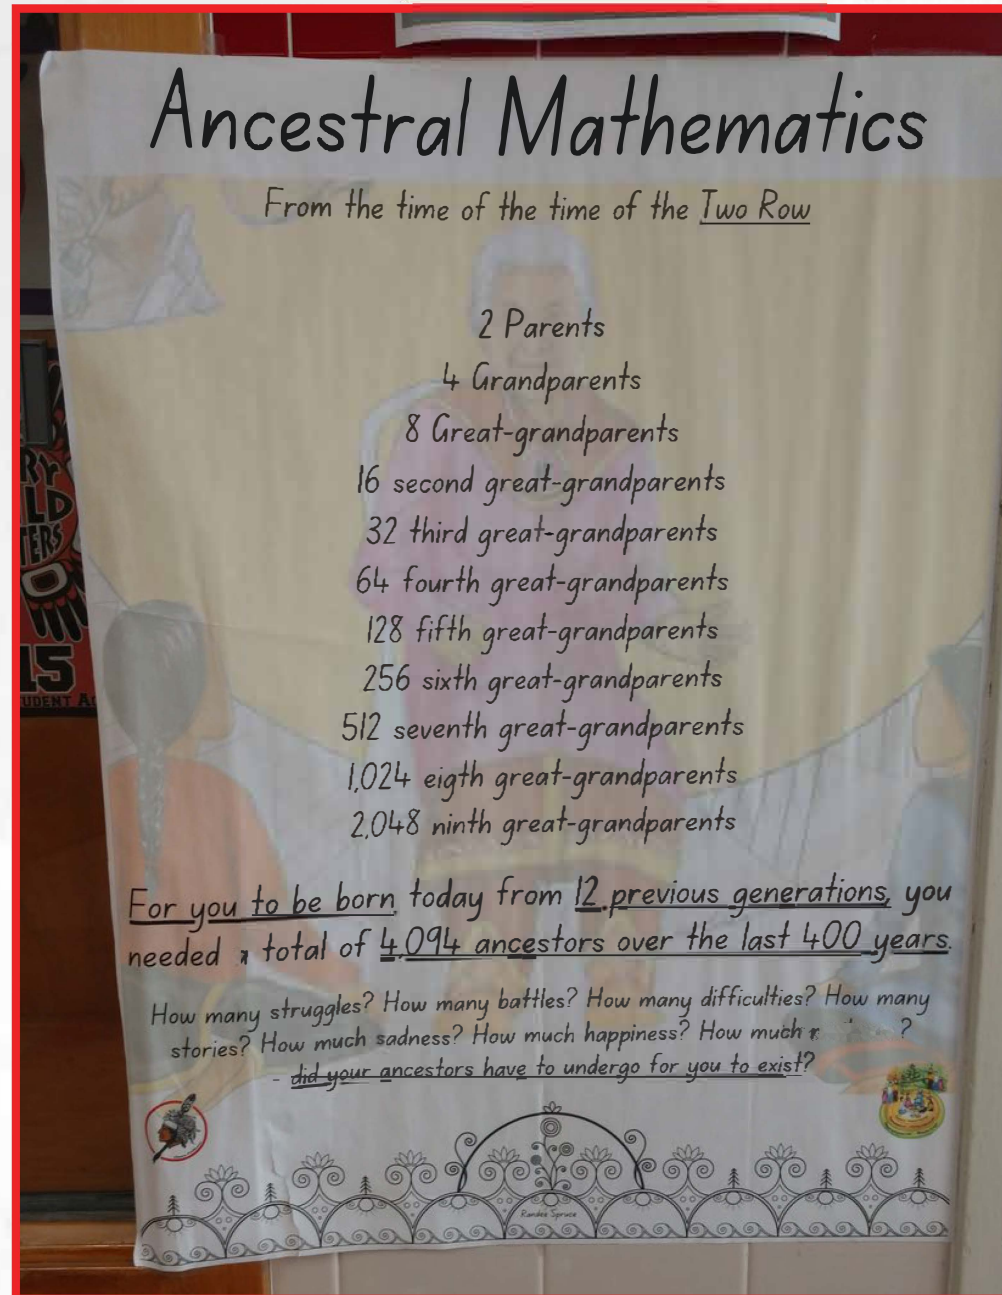 Ancestral Mathematics
From the time of the time of the Two Row
2 Parents
4 Grandparents
8 Great-grandparents
16 second great-grandparents
32 third great-grandparents
64 fourth great-grandparents
128 fifth great-grandparents
256 sixth great-grandparents
512 seventh great-grandparents
1,024 eigth great-grandparents
2,048 ninth great-grandparents
For you to be born today from 12 previous generations, you
needed a total of 4,094 ancestors over the last 400 years.
How many struggles? How many battles? How many difficulties? How many
stories? How much sadness? How much happiness? How much ?
- did your ancestors have to undergo for you to exist?
Randee Spruce
RY
LD
TERS
15
UDENT A